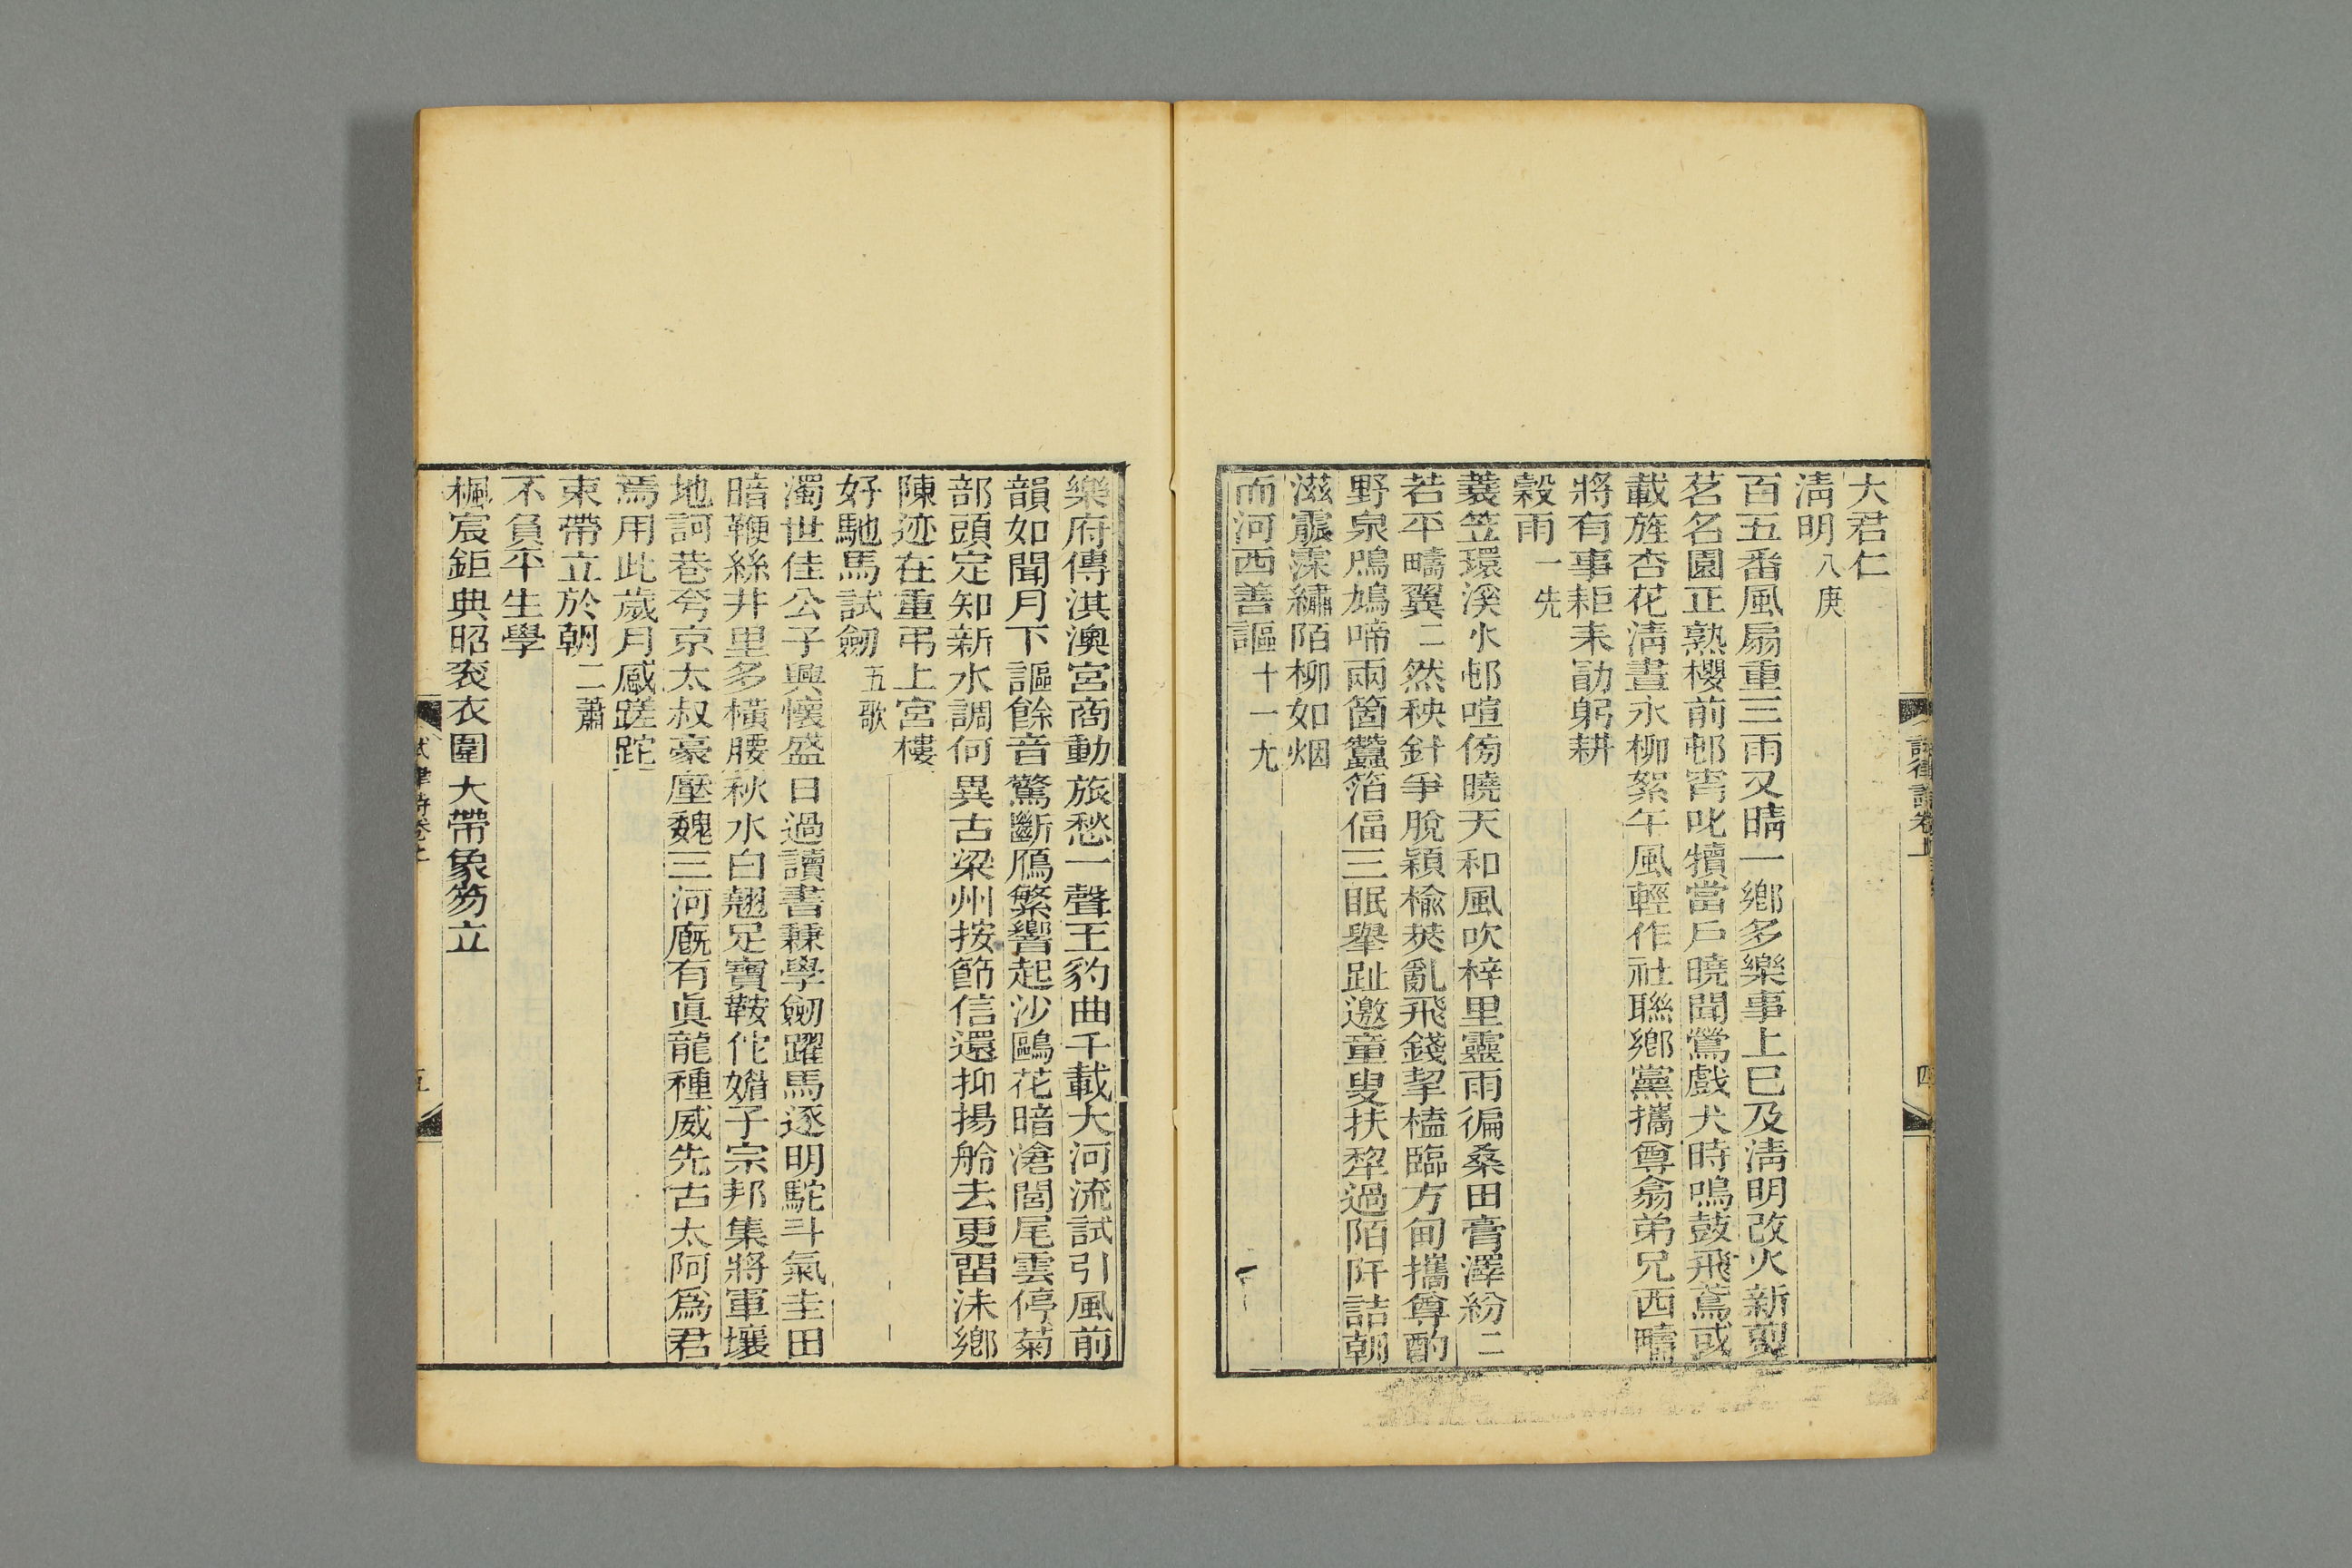 大君仁
清明八庚
百五番風扇重三雨又晴一鄉多樂事上巳及淸明改火新煎
茗名園正熟櫻前邨宵叱犢當戶曉聞鶯戲犬時鳴鼓飛鳶或
載旌杏花淸晝永柳絮午風輕作社聯鄉黨攜尊翕弟兄西疇
將有事耟耒勖躬耕
穀雨一先
蓑笠環溪水邨喧傍曉天和風吹梓里靈雨徧桑田膏澤紛二
若平疇翼二然秧針爭脫穎楡莢亂飛錢挈榼臨方甸攜尊酌
野泉鳲鳩啼兩箇蠶箔偪三眠舉趾邀童叟扶犂過陌阡詰朝
滋霢霂繡陌柳如烟
而河西善謳十一尤
樂府傳淇澳宮商動旅愁一聲王豹曲千載大河流試引風前
韻如聞月下謳餘音驚斷鴈繁響起沙鷗花暗滄閭尾雲停菊
部頭定知新水調何異古梁州按節信還抑揚舲去更留沬鄉
陳迹在重弔上宮樓
好馳馬試劒五歌
濁世佳公子興懷盛日過讀書兼學劒躍馬逐明駝斗氣圭田
暗鞭絲井里多橫腰秋水白翹足寶鞍佗媚子宗邦集將軍壤
地訶巷夸京太叔豪壓魏三河廐有眞龍種威先古太阿爲君
焉用此歲月感蹉跎
束帶立於朝二蕭
不負平生學
楓宸鉅典昭衮衣圍大帶象笏立
試律詩卷上
四
五